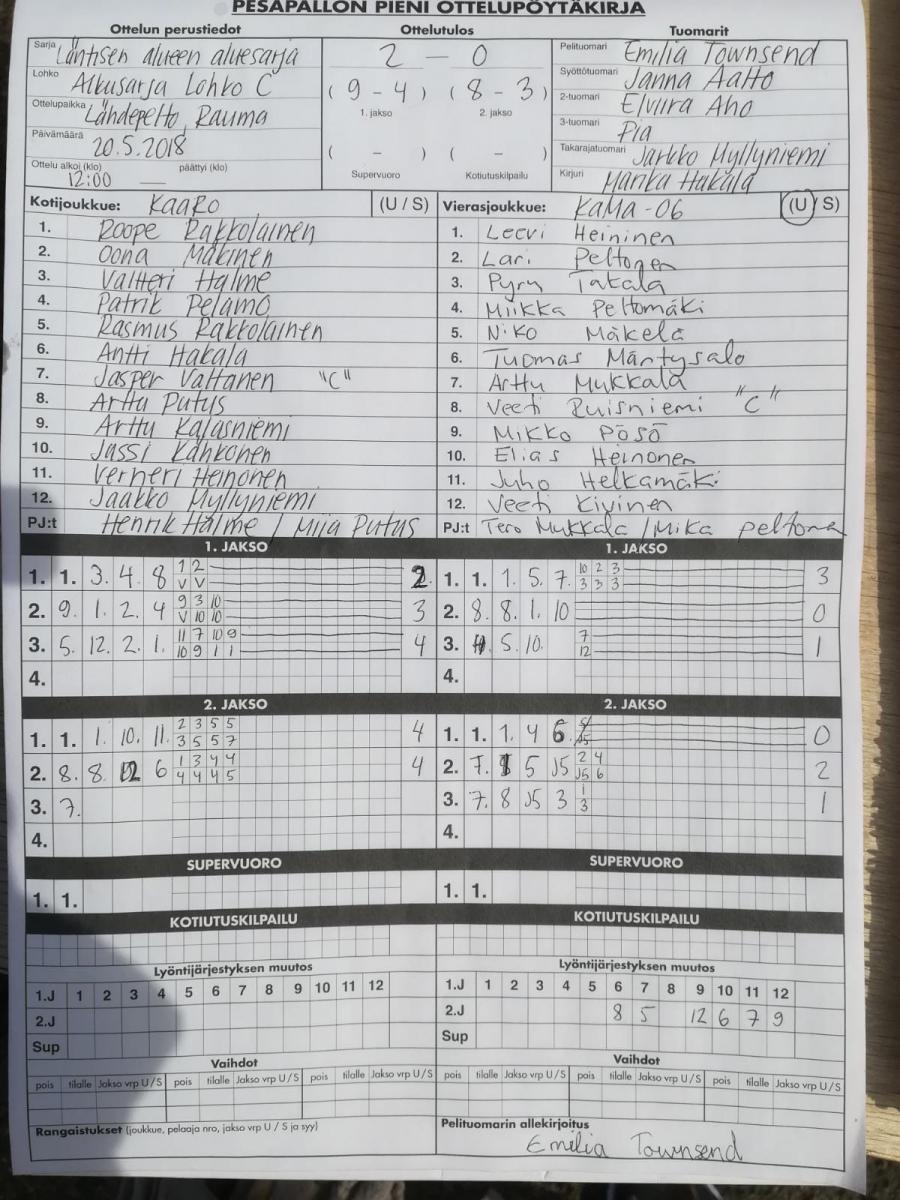 PESÄPALLON PIENI OTTELUPÖYTÄKIRJA
Ottelun perustiedot Ottelutulos Tuomarit
Sarja Läntisen alueen aluesarja
Lohko Alkusarja Lohko C
Ottelupaikka Lähdepelto, Rauma
Päivämäärä 20.5.2018
Ottelu alkoi (klo) päättyi (klo)
12:00 —
2 — 0
(9 - 4) (8 - 3)
1. jakso 2. jakso
( - ) ( - )
Supervuoro Kotiutuskilpailu
Pelituomari Emilia Townsend
Syöttötuomari Janna Aalto
2-tuomari Elviira Aho
3-tuomari Pia
Takarajatuomari Jarkko Myllyniemi
Kirjuri Marika Hakala
Kotijoukkue: KaaRo (U / S)
1. Roope Rakkolainen
2. Oona Mäkinen
3. Valtteri Halme
4. Patrik Pelamo
5. Rasmus Rakkolainen
6. Antti Hakala
7. Jasper Valtanen "C"
8. Arttu Putus
9. Arttu Kalasniemi
10. Jussi Kähkönen
11. Verneri Heinonen
12. Jaakko Myllyniemi
PJ:t Henrik Halme / Miia Putus
Vierasjoukkue: KaMa -06 (U / S)
1. Leevi Heininen
2. Lari Peltonen
3. Pyry Takala
4. Miikka Peltomäki
5. Niko Mäkelä
6. Tuomas Mäntysalo
7. Arttu Mukkala
8. Veeti Ruisniemi "C"
9. Mikko Pösö
10. Elias Heinonen
11. Juho Helkamäki
12. Veeti Kivinen
PJ:t Tero Mukkala / Mika peltoma
1. JAKSO
1. 1. 3. 4. 8 1 2 2.
V V
2. 9. 1. 2. 4 9 3 10 3
V 10 10
3. 5. 12. 2. 1. 11 7 10 9 4
10 9 1 1
4.
1. JAKSO
1. 1. 1. 5. 7. 10 2 3 3
3 3 3
2. 8. 8. 1. 10 0
3. 5. 10. 7 1
12
4.
2. JAKSO
1. 1. 1. 10. 11. 2 3 5 5 4
3 5 5 7
2. 8. 8. 12 6 1 3 4 4 4
4 4 4 5
3. 7.
4.
2. JAKSO
1. 1. 1. 4 6. 0
2. 7. 5 J5 2 4 2
J5 6
3. 7. 8 J5 3 1 1
3
4.
SUPERVUORO
1. 1.
SUPERVUORO
1. 1.
KOTIUTUSKILPAILU
KOTIUTUSKILPAILU
Lyöntijärjestyksen muutos
1.J 1 2 3 4 5 6 7 8 9 10 11 12
2.J
Sup
Lyöntijärjestyksen muutos
1.J 1 2 3 4 5 6 7 8 9 10 11 12
2.J 8 5 12 6 7 9
Sup
Vaihdot
pois tilalle Jakso vrp U / S pois tilalle Jakso vrp U / S pois tilalle Jakso vrp U / S
Vaihdot
pois tilalle Jakso vrp U / S pois tilalle Jakso vrp U / S pois tilalle Jakso vrp U / S
Rangaistukset (joukkue, pelaaja nro, jakso vrp U / S ja syy)
Pelituomarin allekirjoitus
Emilia Townsend